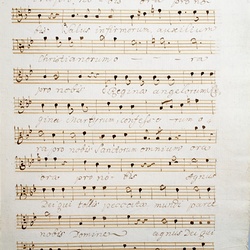 ora pro no
bis Salus infirmorum, auxilium
Christianorum o - - ra
pro nobis Regina angelorum
Martirum, confesso - rum o
ra pro nobis Sanctorum omnium ora
ora pro no - bis Agnus
Dei qui tollis peccata mundi parce
nobis Domine agnus Dei qui